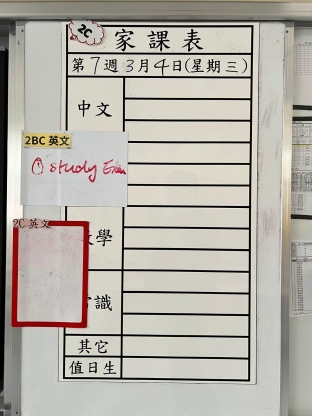 2C
家課表
第7週3月4日(星期三)
中文
2BC 英文
① study Exam
2C 英文
數學
常識
其它
值日生